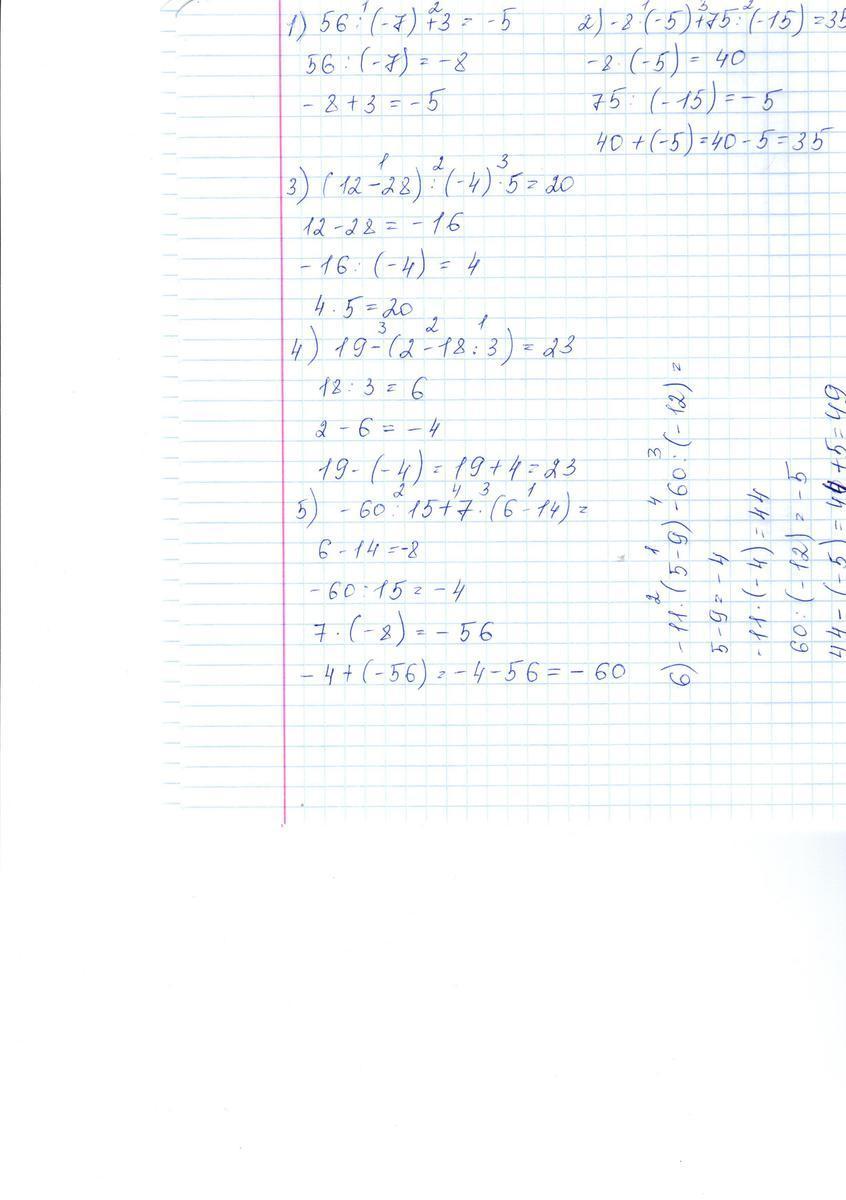 1) 56 : (-7) + 3 = -5
56 : (-7) = -8
- 8 + 3 = - 5
2) -8 · (-5) + 75 : (-15) = 35
-8 · (-5) = 40
75 : (-15) = - 5
40 + (-5) = 40 - 5 = 35
3) (12 - 28) : (-4) · 5 = 20
12 - 28 = - 16
- 16 : (-4) = 4
4 · 5 = 20
4) 19 - (2 - 18 : 3) = 23
18 : 3 = 6
2 - 6 = - 4
19 - (-4) = 19 + 4 = 23
5) - 60 : 15 + 7 · (6 - 14) =
6 - 14 = -8
- 60 : 15 = - 4
7 · (-8) = - 56
- 4 + (-56) = - 4 - 56 = - 60
6) - 11 · (5 - 9) - 60 : (-12) =
5 - 9 = - 4
- 11 · (-4) = 44
60 : (-12) = - 5
44 - (-5) = 44 + 5 = 49